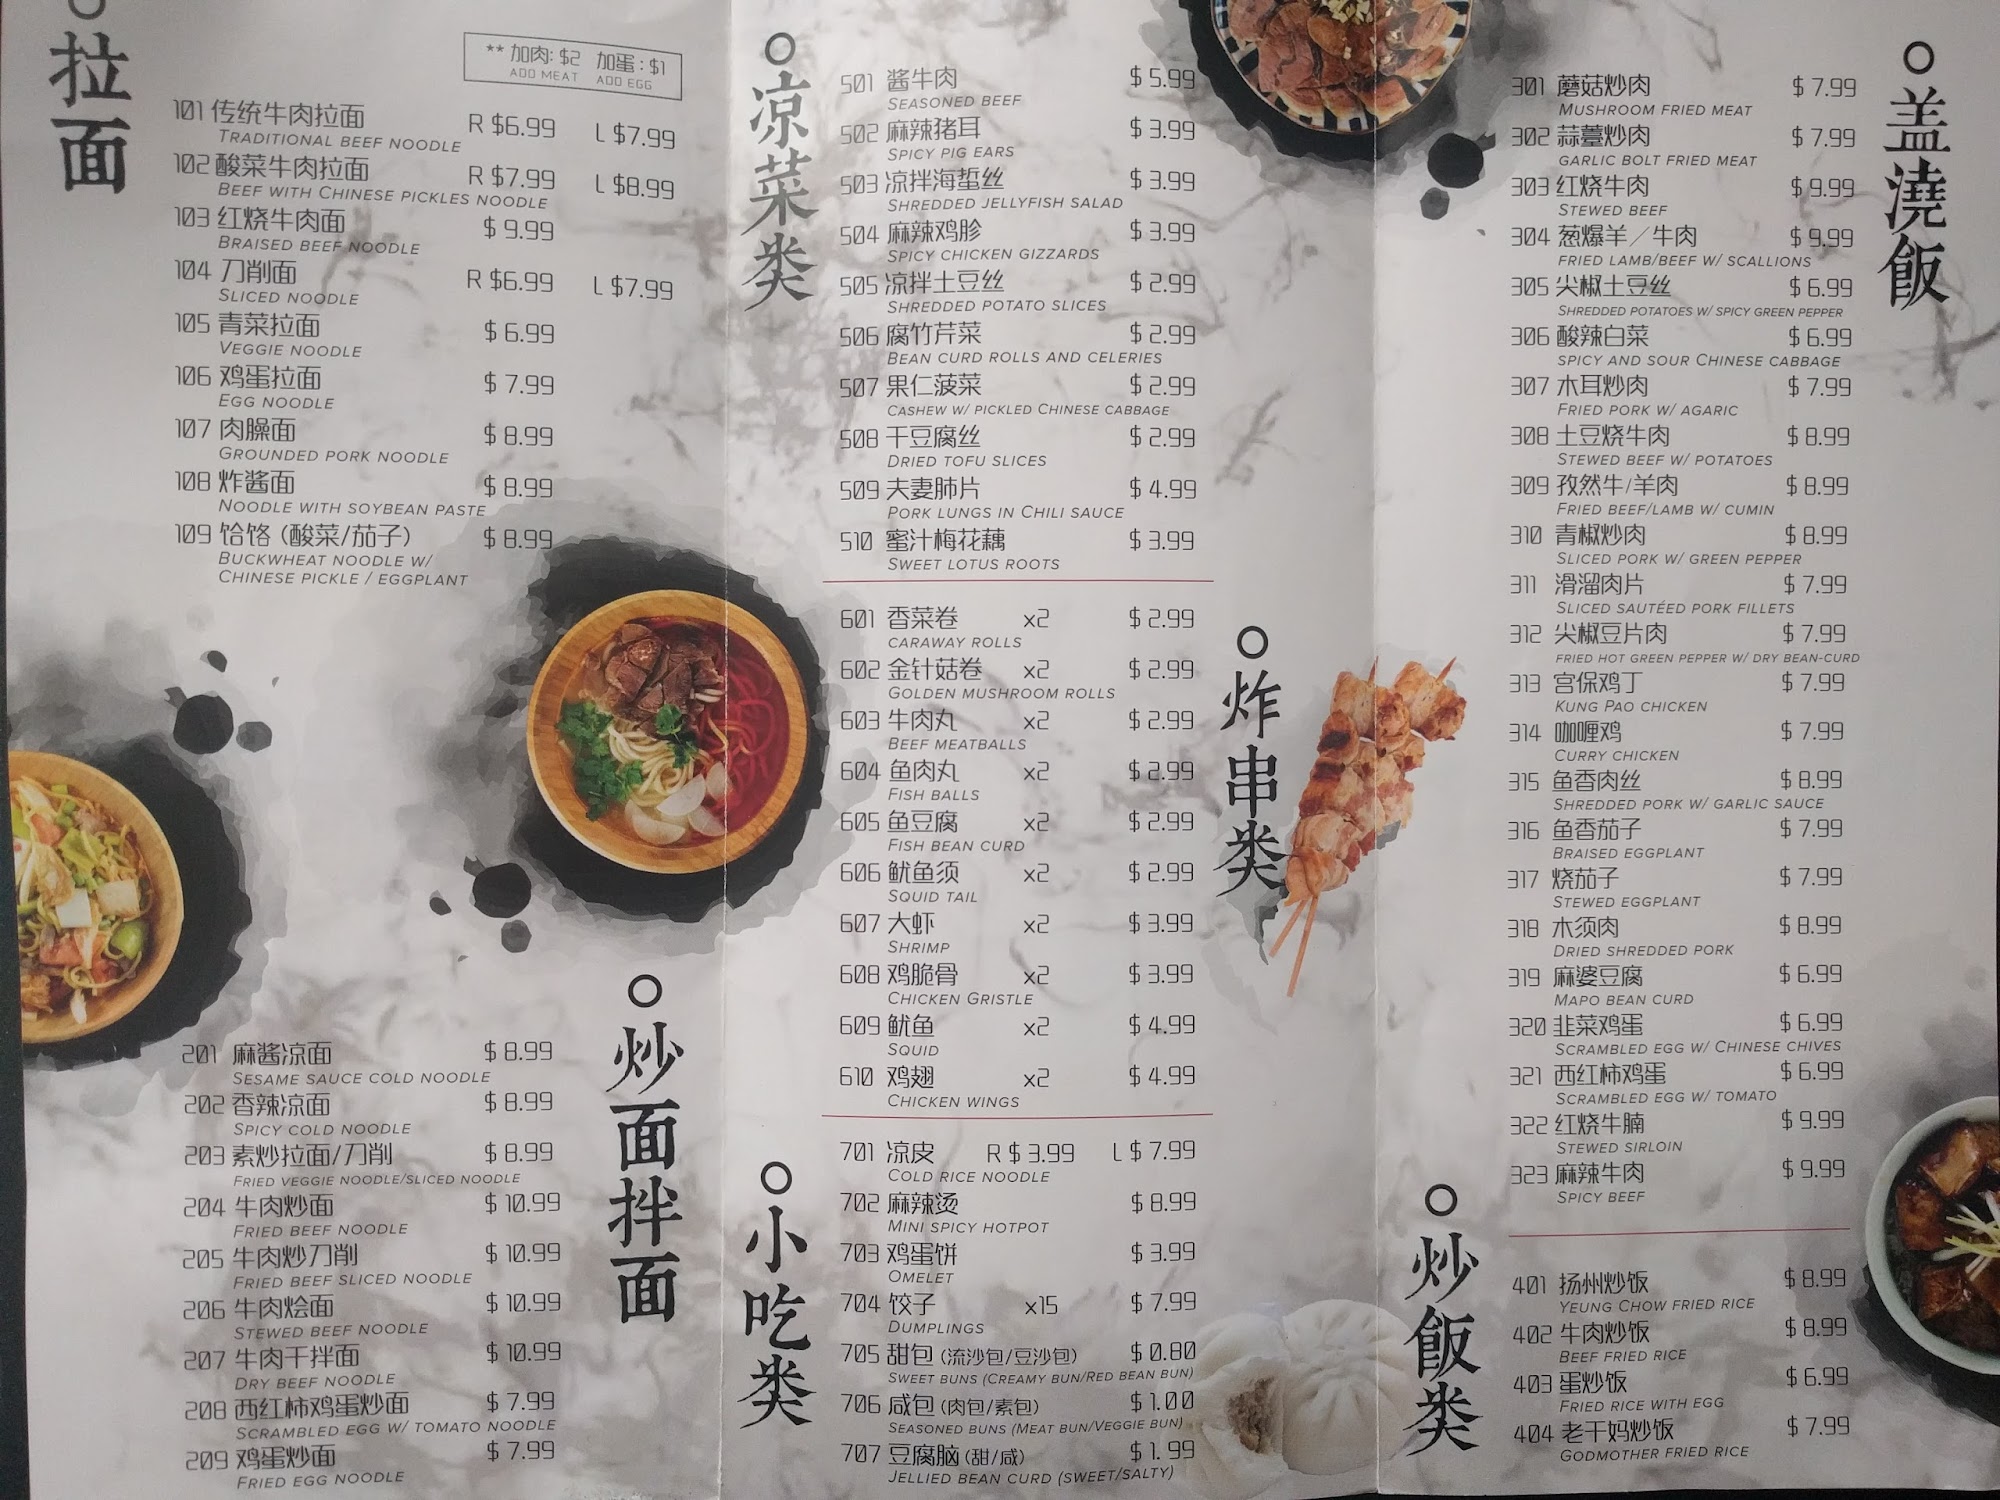 拉面
** 加肉: $2 加蛋: $1
ADD MEAT ADD EGG
101 传统牛肉拉面 R $6.99 L $7.99
TRADITIONAL BEEF NOODLE
102 酸菜牛肉拉面 R $7.99 L $8.99
BEEF WITH CHINESE PICKLES NOODLE
103 红烧牛肉面 $ 9.99
BRAISED BEEF NOODLE
104 刀削面 R $6.99 L $7.99
SLICED NOODLE
105 青菜拉面 $ 6.99
VEGGIE NOODLE
106 鸡蛋拉面 $ 7.99
EGG NOODLE
107 肉臊面 $ 8.99
GROUNDED PORK NOODLE
108 炸酱面 $ 8.99
NOODLE WITH SOYBEAN PASTE
109 饸饹 (酸菜/茄子) $ 8.99
BUCKWHEAT NOODLE W/
CHINESE PICKLE / EGGPLANT
炒面拌面
201 麻酱凉面 $ 8.99
SESAME SAUCE COLD NOODLE
202 香辣凉面 $ 8.99
SPICY COLD NOODLE
203 素炒拉面/刀削 $ 8.99
FRIED VEGGIE NOODLE/SLICED NOODLE
204 牛肉炒面 $ 10.99
FRIED BEEF NOODLE
205 牛肉炒刀削 $ 10.99
FRIED BEEF SLICED NOODLE
206 牛肉烩面 $ 10.99
STEWED BEEF NOODLE
207 牛肉干拌面 $ 10.99
DRY BEEF NOODLE
208 西红柿鸡蛋炒面 $ 7.99
SCRAMBLED EGG W/ TOMATO NOODLE
209 鸡蛋炒面 $ 7.99
FRIED EGG NOODLE
凉菜类
501 酱牛肉 $ 5.99
SEASONED BEEF
502 麻辣猪耳 $ 3.99
SPICY PIG EARS
503 凉拌海蜇丝 $ 3.99
SHREDDED JELLYFISH SALAD
504 麻辣鸡胗 $ 3.99
SPICY CHICKEN GIZZARDS
505 凉拌土豆丝 $ 2.99
SHREDDED POTATO SLICES
506 腐竹芹菜 $ 2.99
BEAN CURD ROLLS AND CELERIES
507 果仁菠菜 $ 2.99
CASHEW W/ PICKLED CHINESE CABBAGE
508 干豆腐丝 $ 2.99
DRIED TOFU SLICES
509 夫妻肺片 $ 4.99
PORK LUNGS IN CHILI SAUCE
510 蜜汁梅花藕 $ 3.99
SWEET LOTUS ROOTS
炸串类
601 香菜卷 x2 $ 2.99
CARAWAY ROLLS
602 金针菇卷 x2 $ 2.99
GOLDEN MUSHROOM ROLLS
603 牛肉丸 x2 $ 2.99
BEEF MEATBALLS
604 鱼肉丸 x2 $ 2.99
FISH BALLS
605 鱼豆腐 x2 $ 2.99
FISH BEAN CURD
606 鱿鱼须 x2 $ 2.99
SQUID TAIL
607 大虾 x2 $ 3.99
SHRIMP
608 鸡脆骨 x2 $ 3.99
CHICKEN GRISTLE
609 鱿鱼 x2 $ 4.99
SQUID
610 鸡翅 x2 $ 4.99
CHICKEN WINGS
小吃类
701 凉皮 R $ 3.99 L $ 7.99
COLD RICE NOODLE
702 麻辣烫 $ 8.99
MINI SPICY HOTPOT
703 鸡蛋饼 $ 3.99
OMELET
704 饺子 x15 $ 7.99
DUMPLINGS
705 甜包 (流沙包/豆沙包) $ 0.80
SWEET BUNS (CREAMY BUN/RED BEAN BUN)
706 咸包 (肉包/素包) $ 1.00
SEASONED BUNS (MEAT BUN/VEGGIE BUN)
707 豆腐脑 (甜/咸) $ 1.99
JELLIED BEAN CURD (SWEET/SALTY)
盖澆飯
301 蘑菇炒肉 $ 7.99
MUSHROOM FRIED MEAT
302 蒜薹炒肉 $ 7.99
GARLIC BOLT FRIED MEAT
303 红烧牛肉 $ 9.99
STEWED BEEF
304 葱爆羊/牛肉 $ 9.99
FRIED LAMB/BEEF W/ SCALLIONS
305 尖椒土豆丝 $ 6.99
SHREDDED POTATOES W/ SPICY GREEN PEPPER
306 酸辣白菜 $ 6.99
SPICY AND SOUR CHINESE CABBAGE
307 木耳炒肉 $ 7.99
FRIED PORK W/ AGARIC
308 土豆烧牛肉 $ 8.99
STEWED BEEF W/ POTATOES
309 孜然牛/羊肉 $ 8.99
FRIED BEEF/LAMB W/ CUMIN
310 青椒炒肉 $ 8.99
SLICED PORK W/ GREEN PEPPER
311 滑溜肉片 $ 7.99
SLICED SAUTÉED PORK FILLETS
312 尖椒豆片肉 $ 7.99
FRIED HOT GREEN PEPPER W/ DRY BEAN-CURD
313 宫保鸡丁 $ 7.99
KUNG PAO CHICKEN
314 咖喱鸡 $ 7.99
CURRY CHICKEN
315 鱼香肉丝 $ 8.99
SHREDDED PORK W/ GARLIC SAUCE
316 鱼香茄子 $ 7.99
BRAISED EGGPLANT
317 烧茄子 $ 7.99
STEWED EGGPLANT
318 木须肉 $ 8.99
DRIED SHREDDED PORK
319 麻婆豆腐 $ 6.99
MAPO BEAN CURD
320 韭菜鸡蛋 $ 6.99
SCRAMBLED EGG W/ CHINESE CHIVES
321 西红柿鸡蛋 $ 6.99
SCRAMBLED EGG W/ TOMATO
322 红烧牛腩 $ 9.99
STEWED SIRLOIN
323 麻辣牛肉 $ 9.99
SPICY BEEF
炒飯类
401 扬州炒饭 $ 8.99
YEUNG CHOW FRIED RICE
402 牛肉炒饭 $ 8.99
BEEF FRIED RICE
403 蛋炒饭 $ 6.99
FRIED RICE WITH EGG
404 老干妈炒饭 $ 7.99
GODMOTHER FRIED RICE